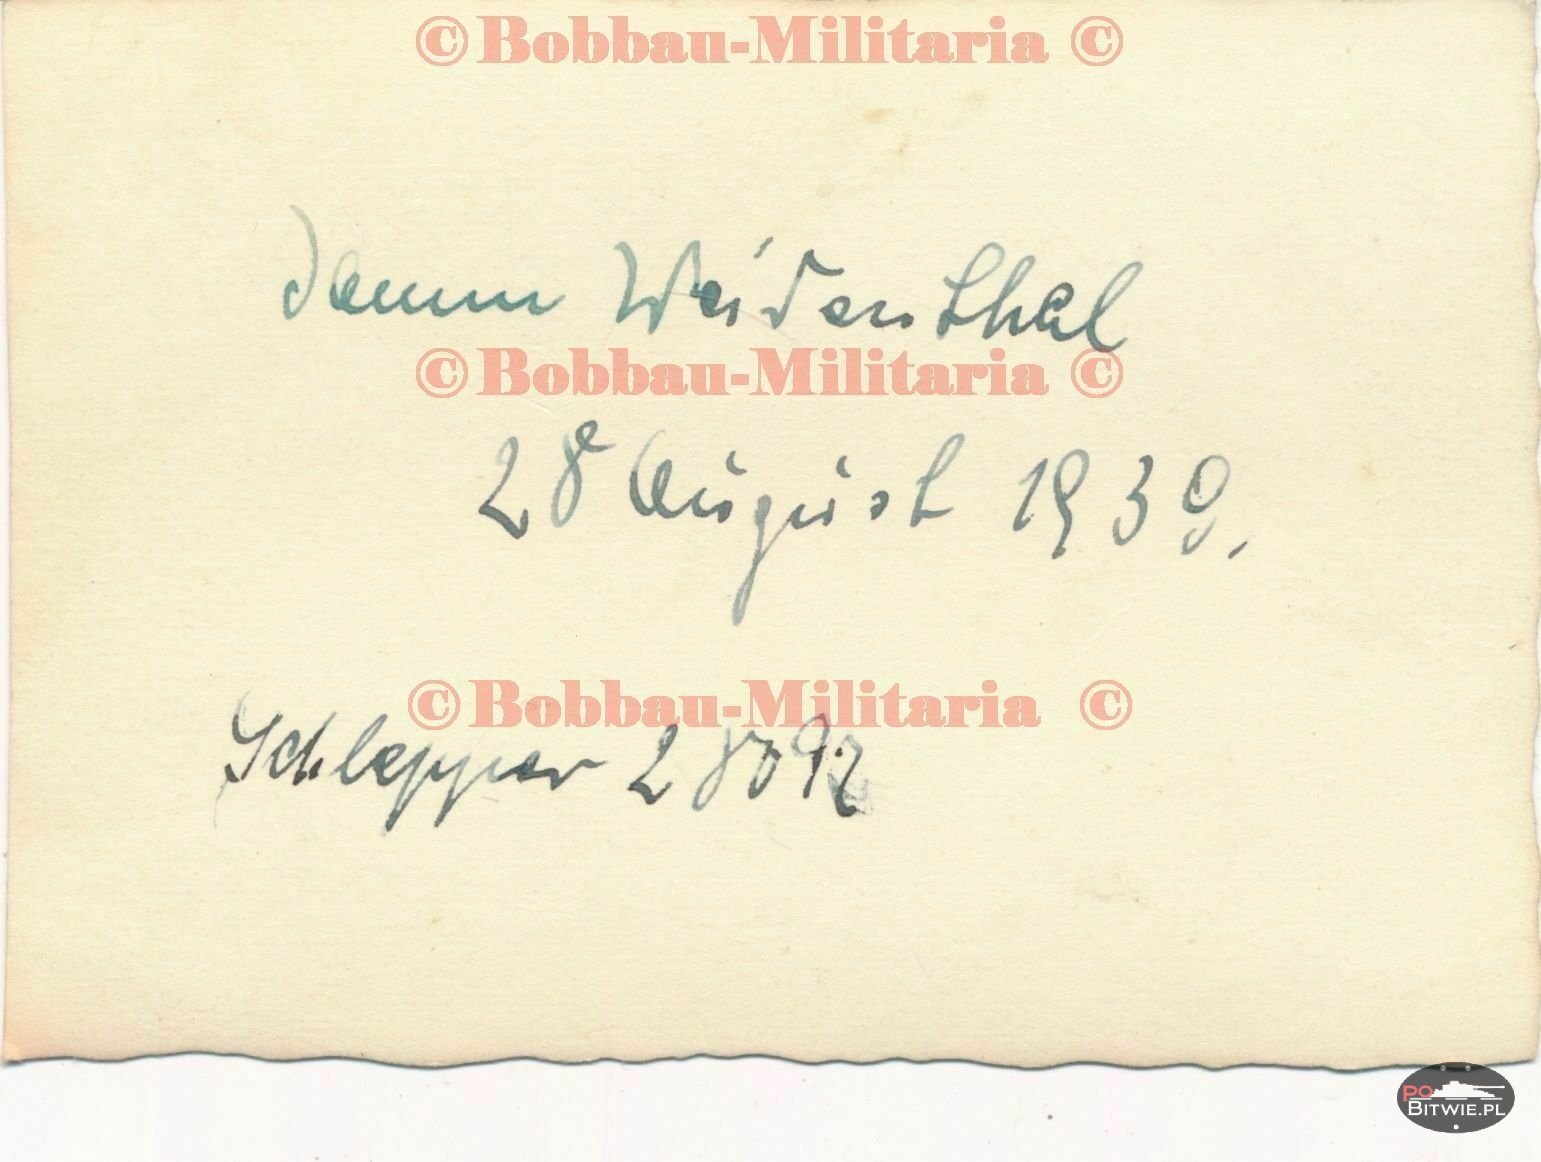 ©Bobbau-Militaria ©
Damm Weidenthal
©Bobbau-Militaria ©
28 August 1939.
©Bobbau-Militaria ©
Schlepper
PO
BITWIE.PL